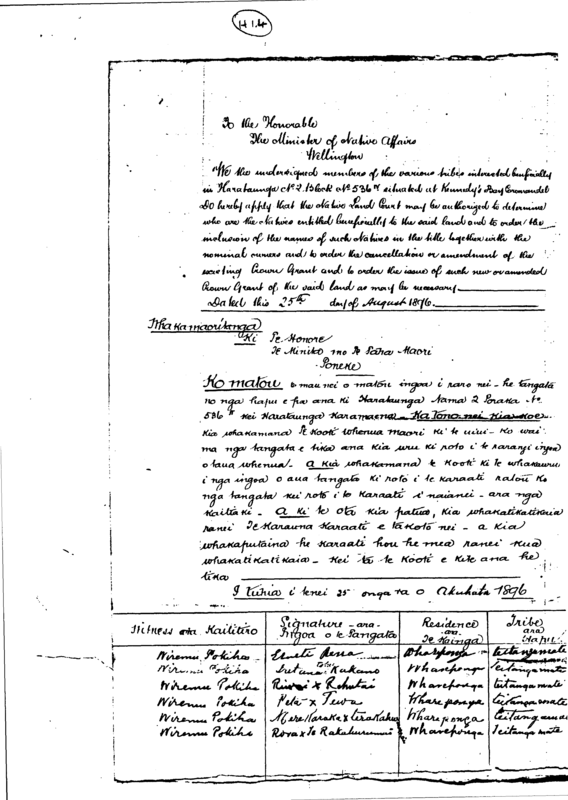 H14
To the Honorable
The Minister of Native Affairs
Wellington
We the undersigned members of the various tribes interested beneficially
in Harataunga No. 2 Block No 536 situated at Kennedy's Bay Coromandel
Do hereby apply that the Native Land Court may be authorized to determine
who are the Natives entitled beneficially to the said land and to order the
inclusion of the names of such Natives in the title together with the
nominal owners and to order the cancellation or amendment of the
existing Crown Grant and to order the issue of such new or amended
Crown Grant of the said land as may be necessary
Dated this 25th day of August 1896.
Whakamaoritanga
Ki Te Honore
Te Minita mo te Taha Maori
Poneke
Ko matou o mau nei o matou ingoa i raro nei - he tangata
no nga hapu e pa ana ki Harataunga Nama 2 Poraka No.
536 kei Harataunga Karamaena Ka tono nei kia koe
kia whakamana te kooti whenua maori ki te uiui - ko wai
ma nga tangata e tika ana kia uru ki roto i te rarangi ingoa
o taua whenua - a kia whakamana te kooti ki te whakauru
i nga ingoa o aua tangata ki roto i te karaati ratou ko
nga tangata kei roto i te karaati i naianei - ara nga
kaitiaki - a ki te ota kia patua, kia whakatikatikaia
ranei te karauna karaati e takoto nei - a kia
whakaputaina he karaati hou he mea ranei kua
whakatikatikaia - kei ta te kooti e kite ana he
tika
I tuhia i tenei 25 o nga ra o Akuhata 1896
Witness ara Kaititiro Signature - ara - Ingoa o te Tangata Residence ara Te Kainga Tribe ara Hapu
Wiremu Pokiha Rena Whareponga teitangamate
Wiremu Pokiha Kukano Whareponga teitangamate
Wiremu Pokiha x Rohutai Whareponga teitangamate
Wiremu Pokiha Peta x Tewa Whareponga teitangamate
Wiremu Pokiha Mere Karaka x Whareponga
Wiremu Pokiha Rora x Te Whareponga teitangamate